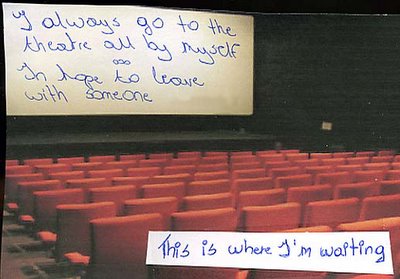 I always go to the
theatre all by myself
ooo
In hope to leave
with someone
This is where I'm waiting